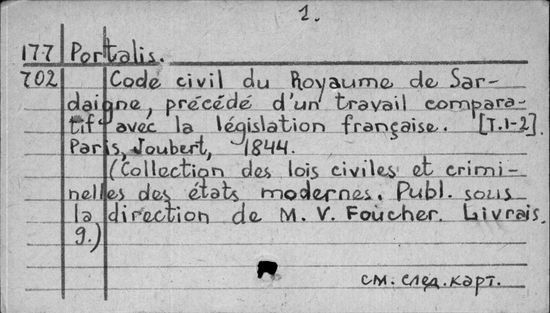 1.
177 Portalis.
702 Code civil du Royaume de Sar-
daigne, précédé d'un travail compara-
tif avec la législation française. [T.1-2].
Paris, Joubert, 1844.
(Collection des lois civiles et crimi-
nelles des états modernes. Publ. sous
la direction de M. V. Foucher. Livrais.
9.)
см. след. карт.